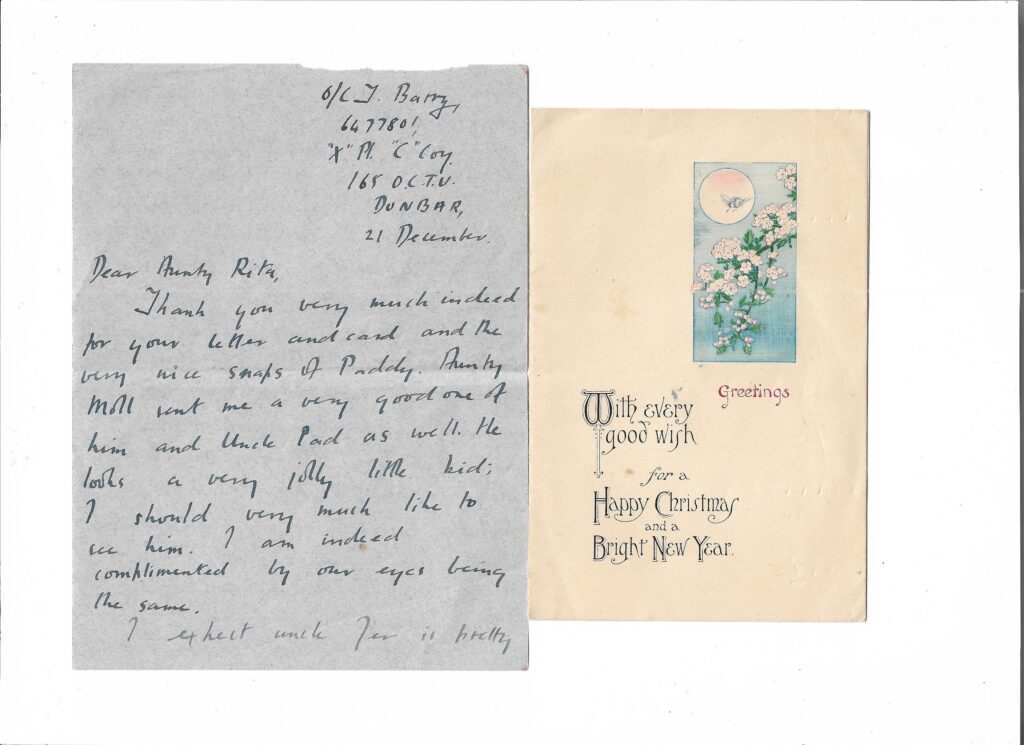 O/C J. Barry,
6477801,
"X" Pl. "C" Coy.
165 O.C.T.U.
DUNBAR,
21 December.
Dear Aunty Rita,
Thank you very much indeed
for your letter and card and the
very nice snaps of Paddy. Aunty
Moll sent me a very good one of
him and Uncle Pad as well. He
looks a very jolly little kid;
I should very much like to
see him. I am indeed
complimented by our eyes being
the same.
I expect uncle Jer is pretty
Greetings
With every
good wish
for a
Happy Christmas
and a
Bright New Year.